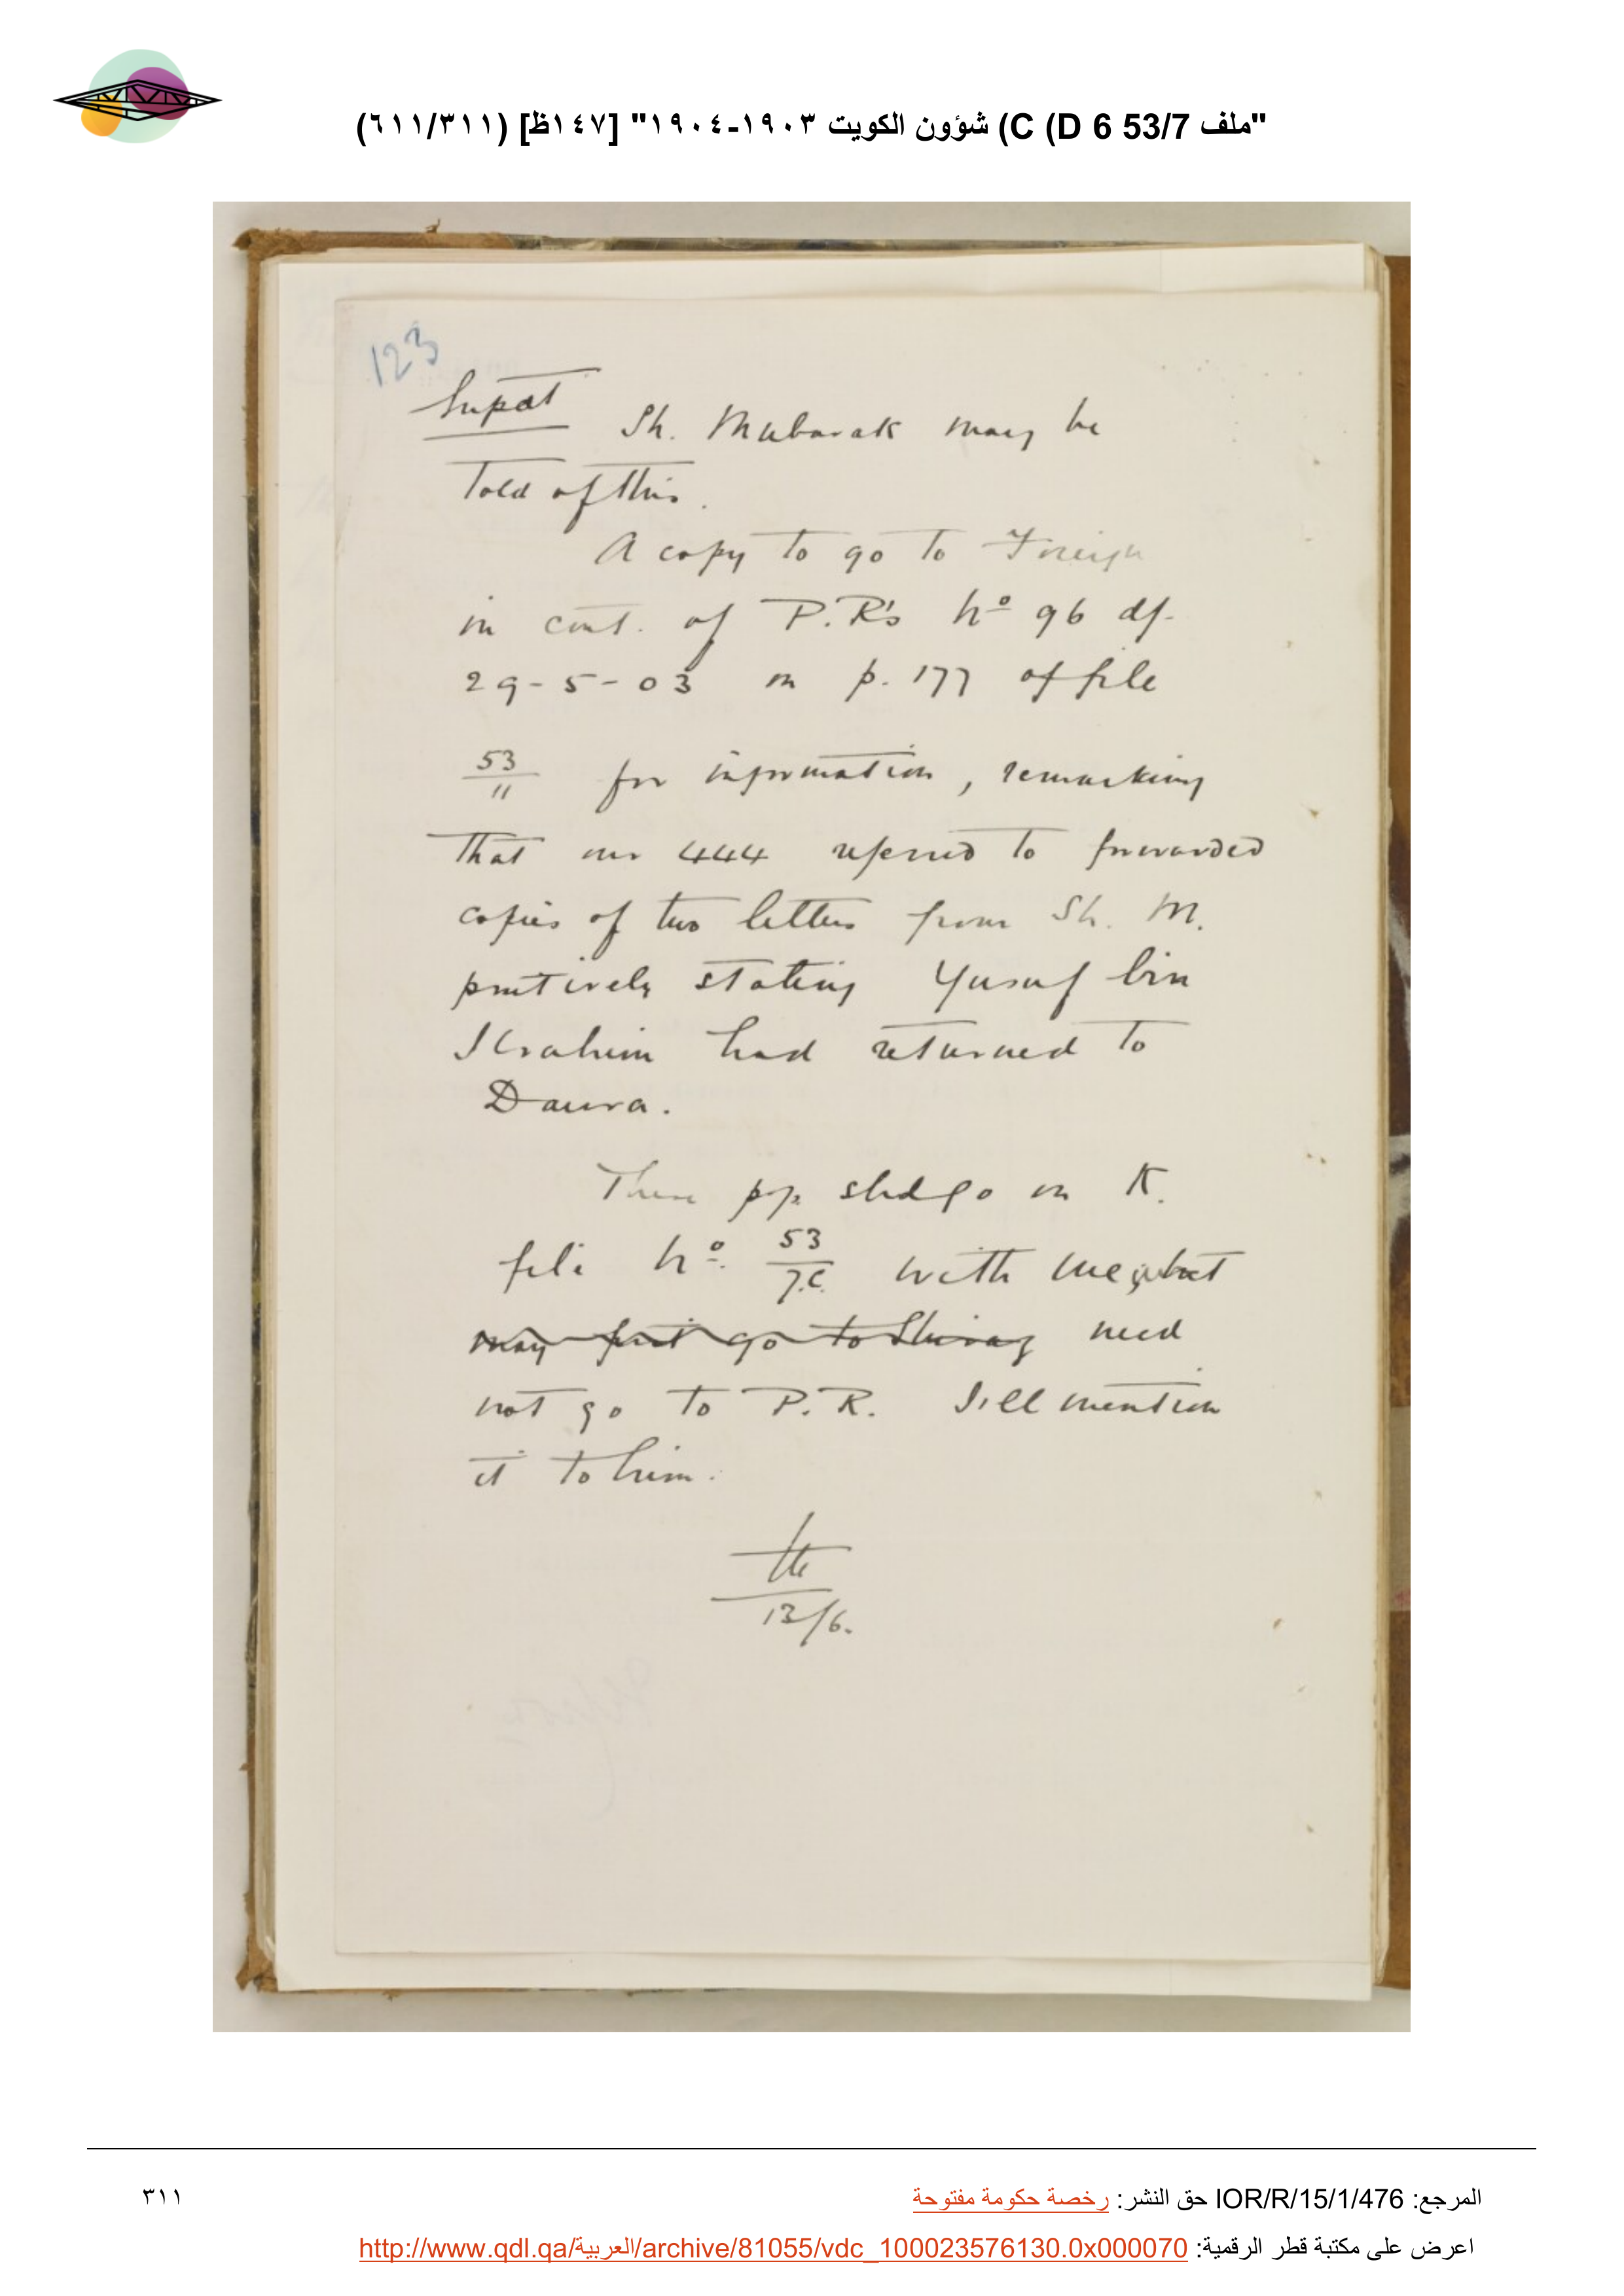 "ملف 53/7 C (D 6) شؤون الكويت ١٩٠٣-١٩٠٤" [١٤٧ظ] (٦١١/٣١١)
123
Supdt Sh. Mubarak may be
told of this.
A copy to go to Foreign
in cont. of P.R's No 96 df-
29-5-03 on p. 177 of file
53/11 for information, remarking
that our 444 referred to forwarded
copies of two letters from Sh. M.
positively stating Yusuf bin
Ibrahim had returned to
Daura.
These pp. shd go on K.
file No. 53/7.C. with me, but
may first go to Shiraz need
not go to P.R. I'll mention
it to him.
13/6.
المرجع: IOR/R/15/1/476 حق النشر: رخصة حكومة مفتوحة
٣١١
اعرض على مكتبة قطر الرقمية: http://www.qdl.qa/العربية/archive/81055/vdc_100023576130.0x000070